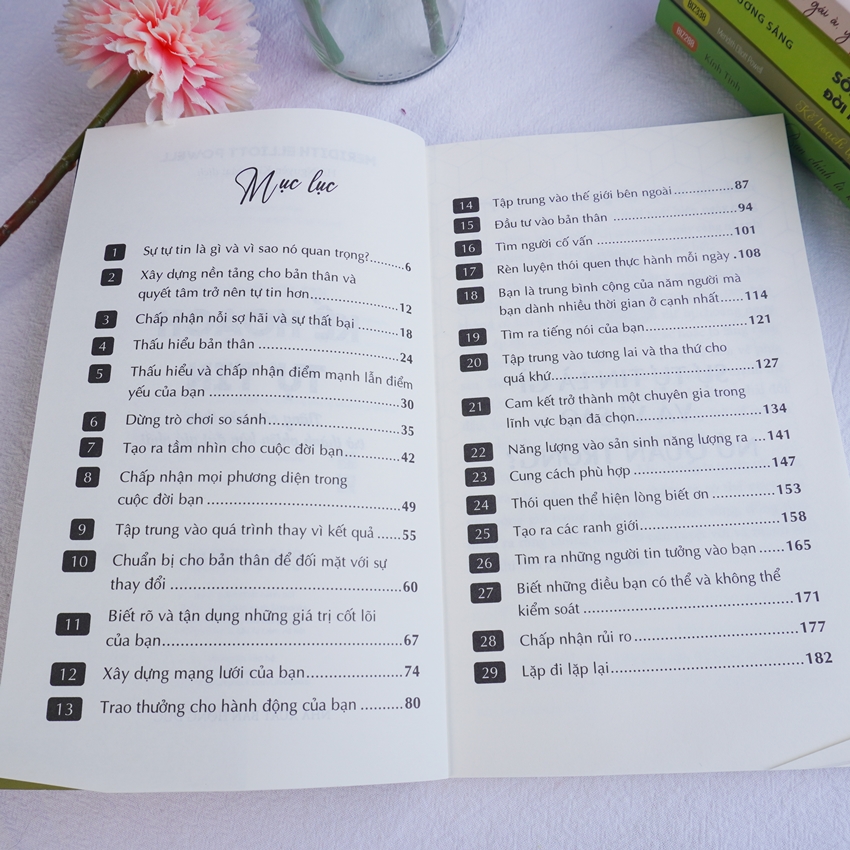 BIZBOOKS
SỐNG
ĐỜI
Mục lục
1 Sự tự tin là gì và vì sao nó quan trọng?........6
2 Xây dựng nền tảng cho bản thân và
quyết tâm trở nên tự tin hơn....................12
3 Chấp nhận nỗi sợ hãi và sự thất bại ........18
4 Thấu hiểu bản thân ..............................24
5 Thấu hiểu và chấp nhận điểm mạnh lẫn điểm
yếu của bạn ........................................30
6 Dừng trò chơi so sánh............................35
7 Tạo ra tầm nhìn cho cuộc đời bạn............42
8 Chấp nhận mọi phương diện trong
cuộc đời bạn........................................49
9 Tập trung vào quá trình thay vì kết quả .....55
10 Chuẩn bị cho bản thân để đối mặt với sự
thay đổi ..............................................60
11 Biết rõ và tận dụng những giá trị cốt lõi
của bạn................................................67
12 Xây dựng mạng lưới của bạn....................74
13 Trao thưởng cho hành động của bạn ..........80
14 Tập trung vào thế giới bên ngoài...............87
15 Đầu tư vào bản thân ..............................94
16 Tìm người cố vấn ................................101
17 Rèn luyện thói quen thực hành mỗi ngày .108
18 Bạn là trung bình cộng của năm người mà
bạn dành nhiều thời gian ở cạnh nhất......114
19 Tìm ra tiếng nói của bạn........................121
20 Tập trung vào tương lai và tha thứ cho
quá khứ..............................................127
21 Cam kết trở thành một chuyên gia trong
lĩnh vực bạn đã chọn............................134
22 Năng lượng vào sản sinh năng lượng ra ...141
23 Cung cách phù hợp ..............................147
24 Thói quen thể hiện lòng biết ơn ..............153
25 Tạo ra các ranh giới..............................158
26 Tìm ra những người tin tưởng vào bạn ......165
27 Biết những điều bạn có thể và không thể
kiểm soát ............................................171
28 Chấp nhận rủi ro..................................177
29 Lặp đi lặp lại........................................182